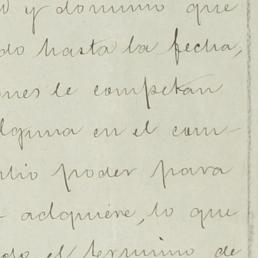 y dominio que
do hasta la fecha,
ones le competan
alguna en el com-
plio poder para
adquiere, lo que
do el termino de